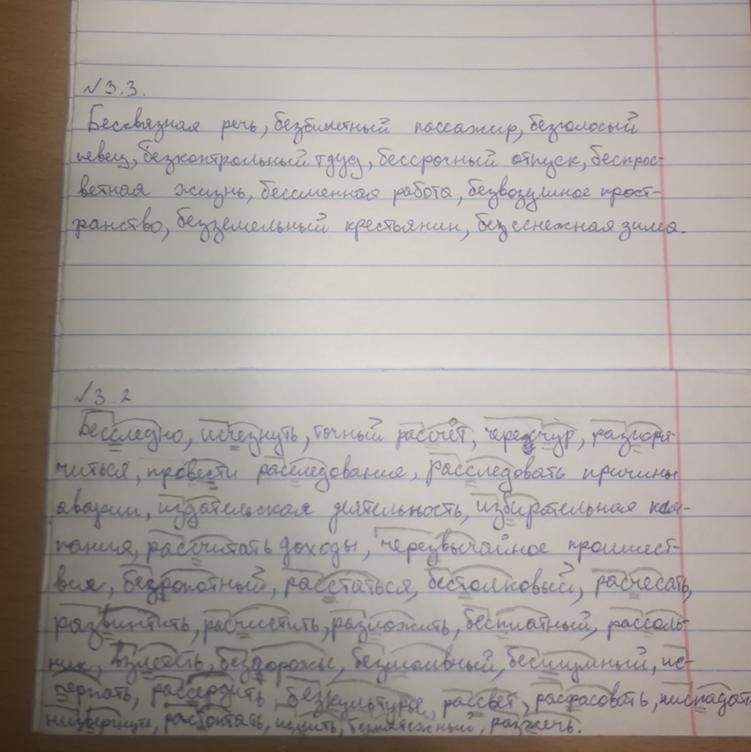 √3.3.
Бессвязная речь, безбилетный пассажир, безголосый
певец, безконтрольный труд, бессрочный отпуск, беспрос-
ветная жизнь, бессменная работа, безвоздушное прост-
ранство, безземельный крестьянин, безснежная зима.
√3.2
Бесследно, исчезнуть, точный рассчёт, чересчур, разгоря-
читься, провести расследование, расследовать причины
аварии, издательская деятельность, избирательная кам-
пания, рассчитать доходы, черезвычайное происшест-
вие, безропотный, расстаться, бестолковый, расчесать,
развинтить, расчистить, разложить, бесплатный, рассоль-
ник, взлететь, бездорожье, безмолвный, бесшумный, ис-
пугать, рассердить, безкультурье, рассвет, расфасовать, ниспадать
низвергнуть, растоптать, безмятежный, разжечь.